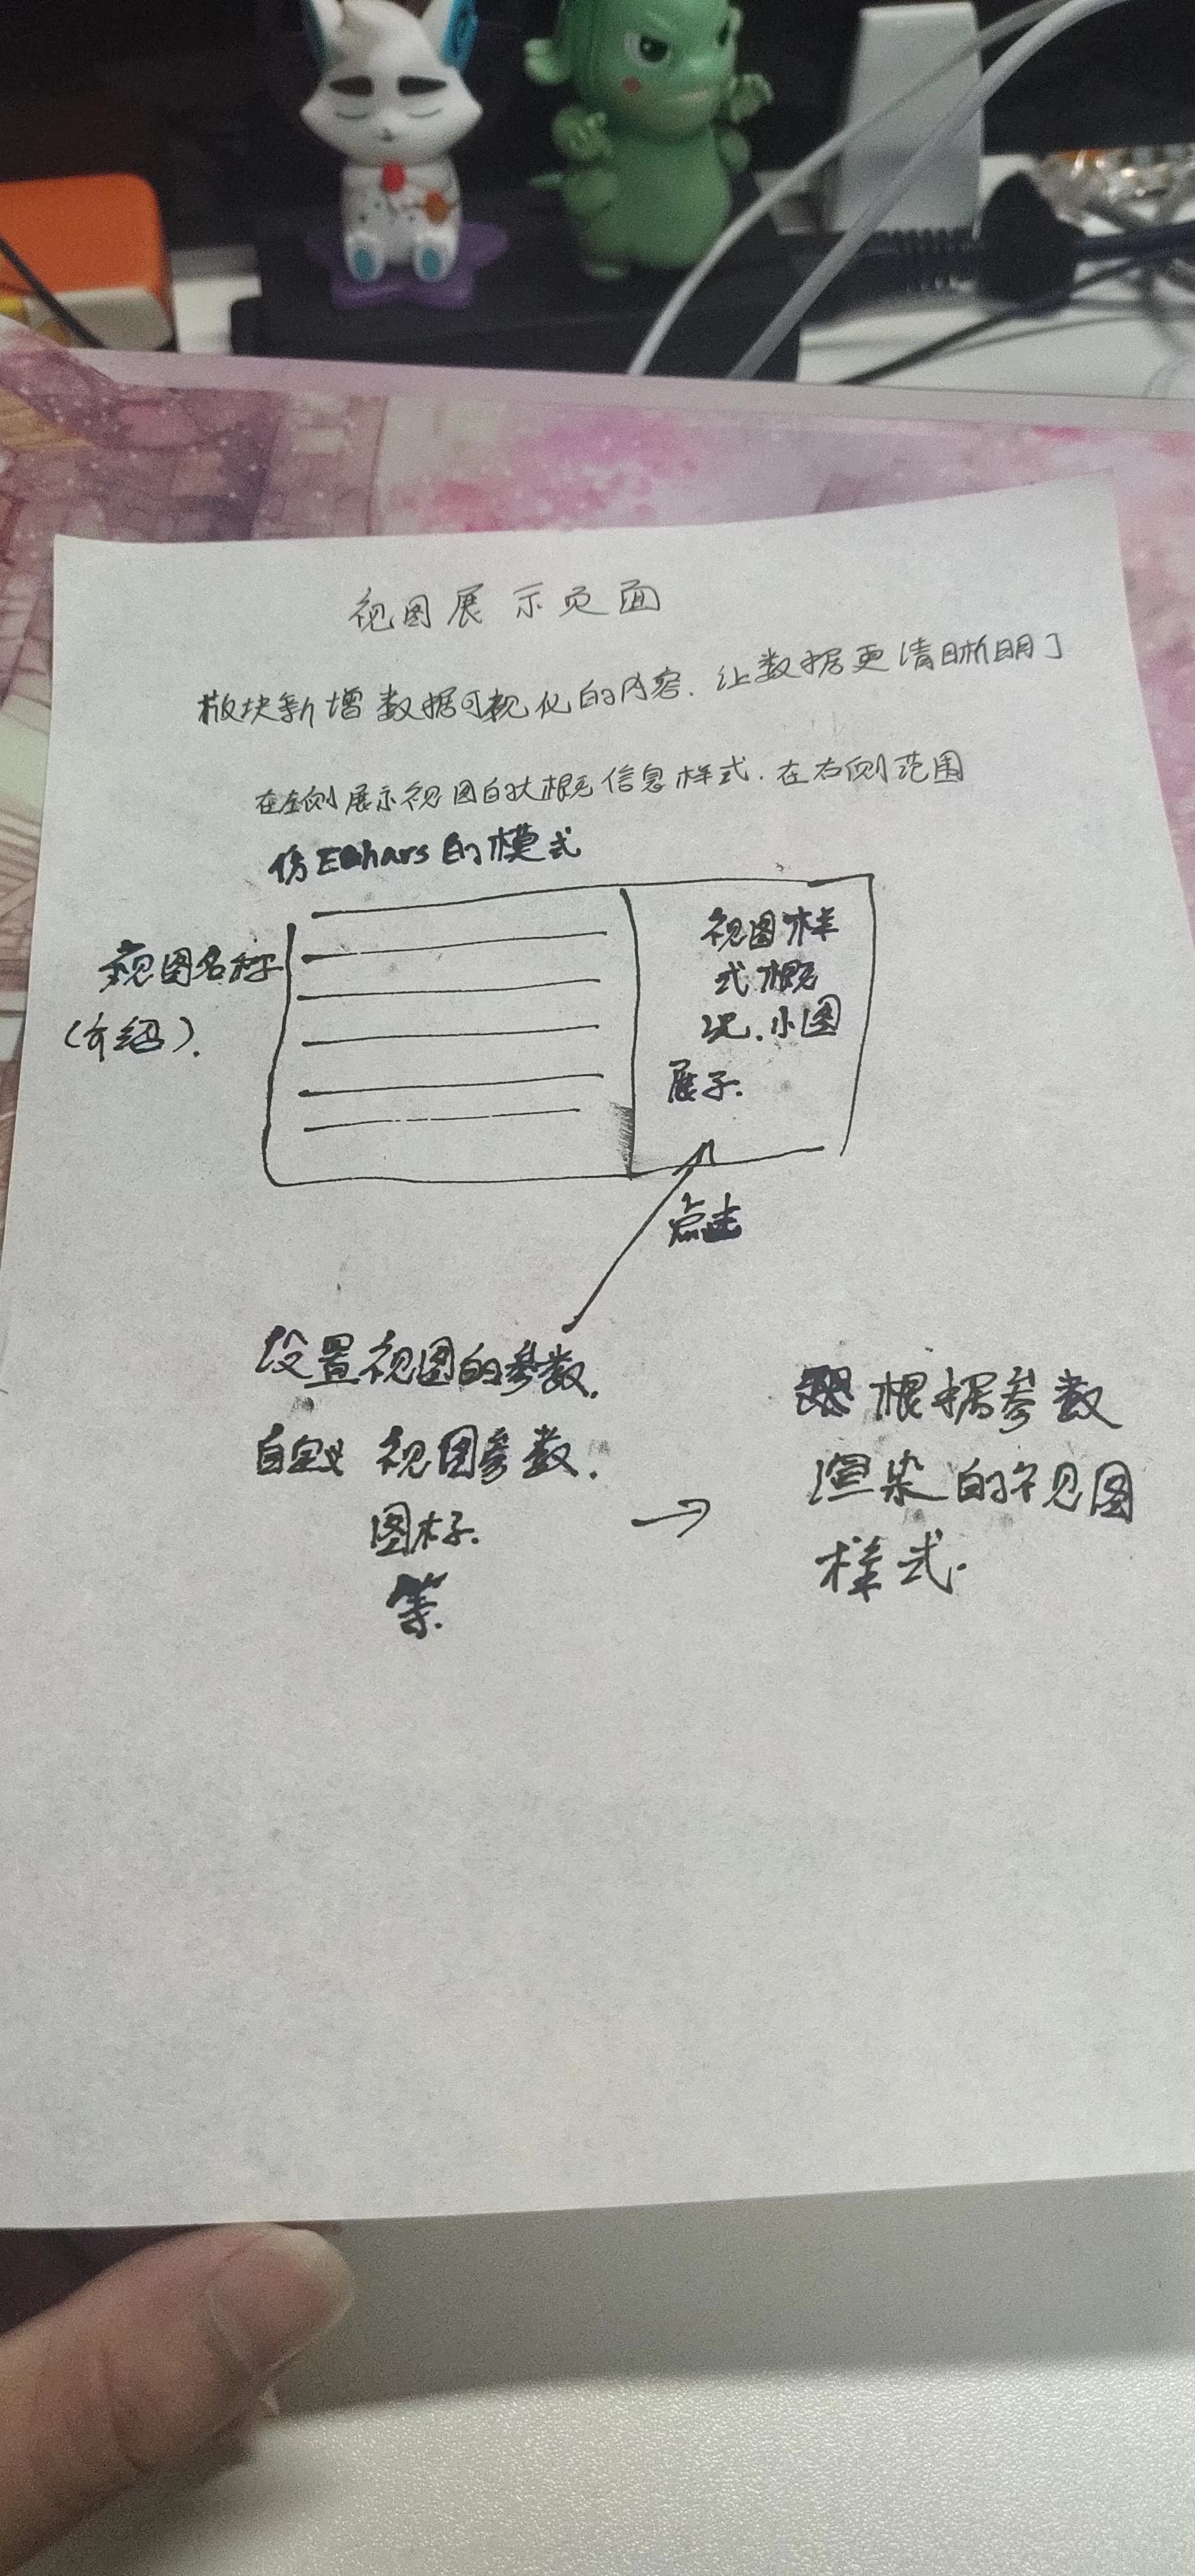 视图展示页面
板块新增数据可视化的内容.让数据更清晰明了
在左侧展示视图的大概信息样式.在右侧范围
仿Echars的模式
视图名称
(介绍).
视图样
式概
况.小图
展子.
点击
设置视图的参数.
自定义 视图参数.
图标.
等.
→
根据参数
渲染的视图
样式.